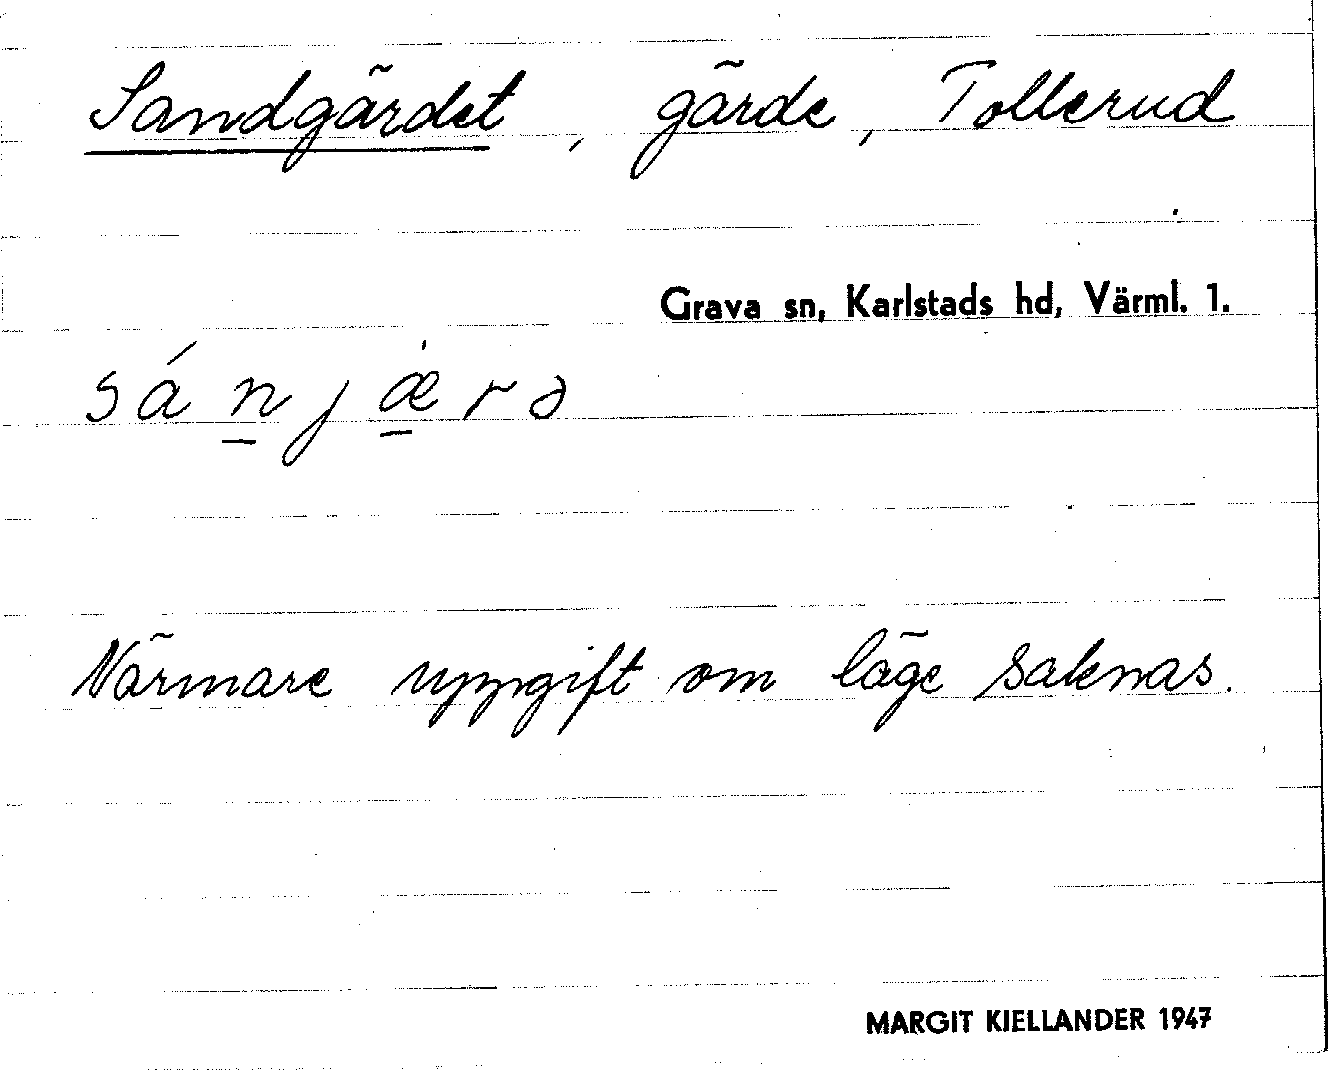 Sandgärdet, gärde, Tollerud
Grava sn, Karlstads hd, Värml. 1.
sánjærə
Närmare uppgift om läge saknas.
MARGIT KIELLANDER 1947